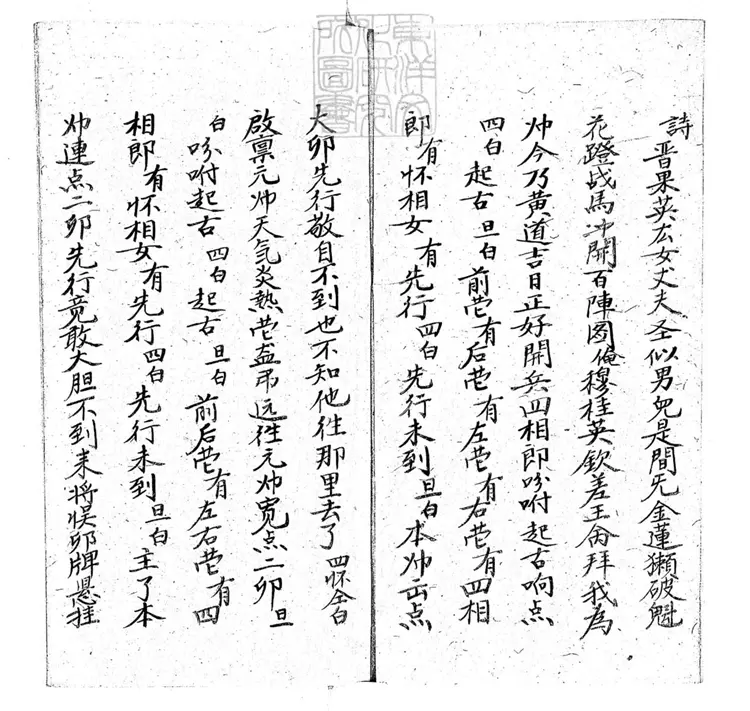 詩 晋果英厷女丈夫圣似男児是間旡金蓮獭破魁
花蹬战馬冲開百陣圖俺穆桂英欽差王侖拜我為
帅今乃黄道吉日正好開兵四相郎吩咐起古响点
四白 起古 旦白 前营有后营 有左营 有右营 有四相
郎 有 怀相女 有 先行 四白 先行未到 旦白 本帅云点
大卯先行敬自不到也不知他往那里去了 四怀仝白
啟禀元帅天气炎熱营盔吊远往元帅宽点二卯 旦
白 吩咐起古 四白 起古 旦白 前后营有左右营有四
相郎 有怀相女有先行 四白 先行未到 旦白 主了本
帅連点二卯先行竟敢大胆不到耒将悞卯牌悬挂
東洋文化研究所圖書